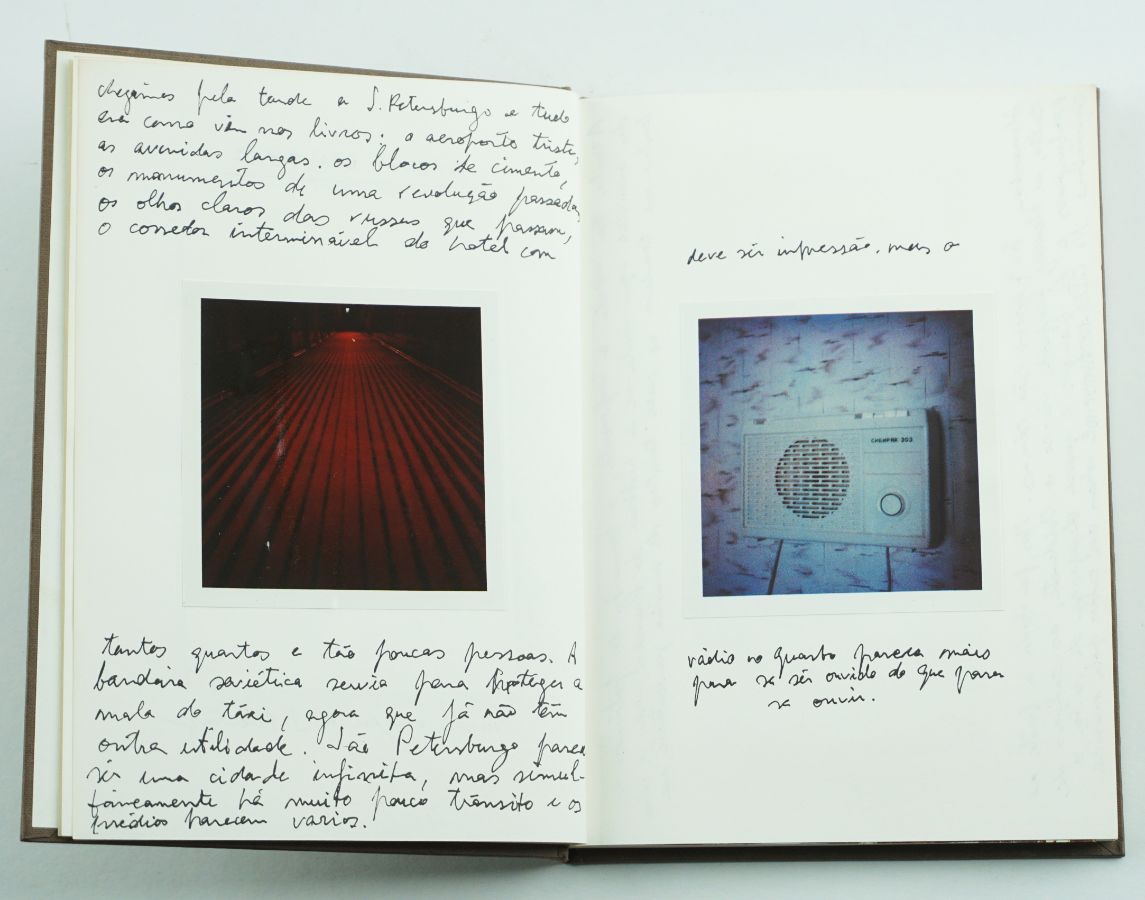 chegámos pela tarde a S. Petersburgo e tudo
era como vem nos livros. o aeroporto triste,
as avenidas largas. os blocos de cimento,
os monumentos de uma revolução passada,
os olhos claros das russas que passam,
o corredor interminável do hotel com
tantos quartos e tão poucas pessoas. A
bandeira soviética servia para proteger a
mala do táxi, agora que já não tem
outra utilidade. São Petersburgo parece
ser uma cidade infinita, mas simul-
taneamente há muito pouco trânsito e os
prédios parecem vazios.
deve ser impressão. mas o
CHEMPAK 203
rádio no quarto parecia mais
para se ser ouvido do que para
se ouvir.